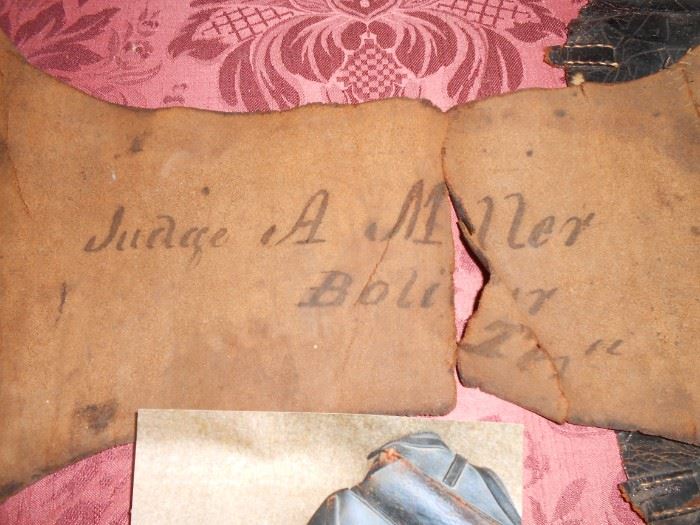 Judge A Miller
Bolivar